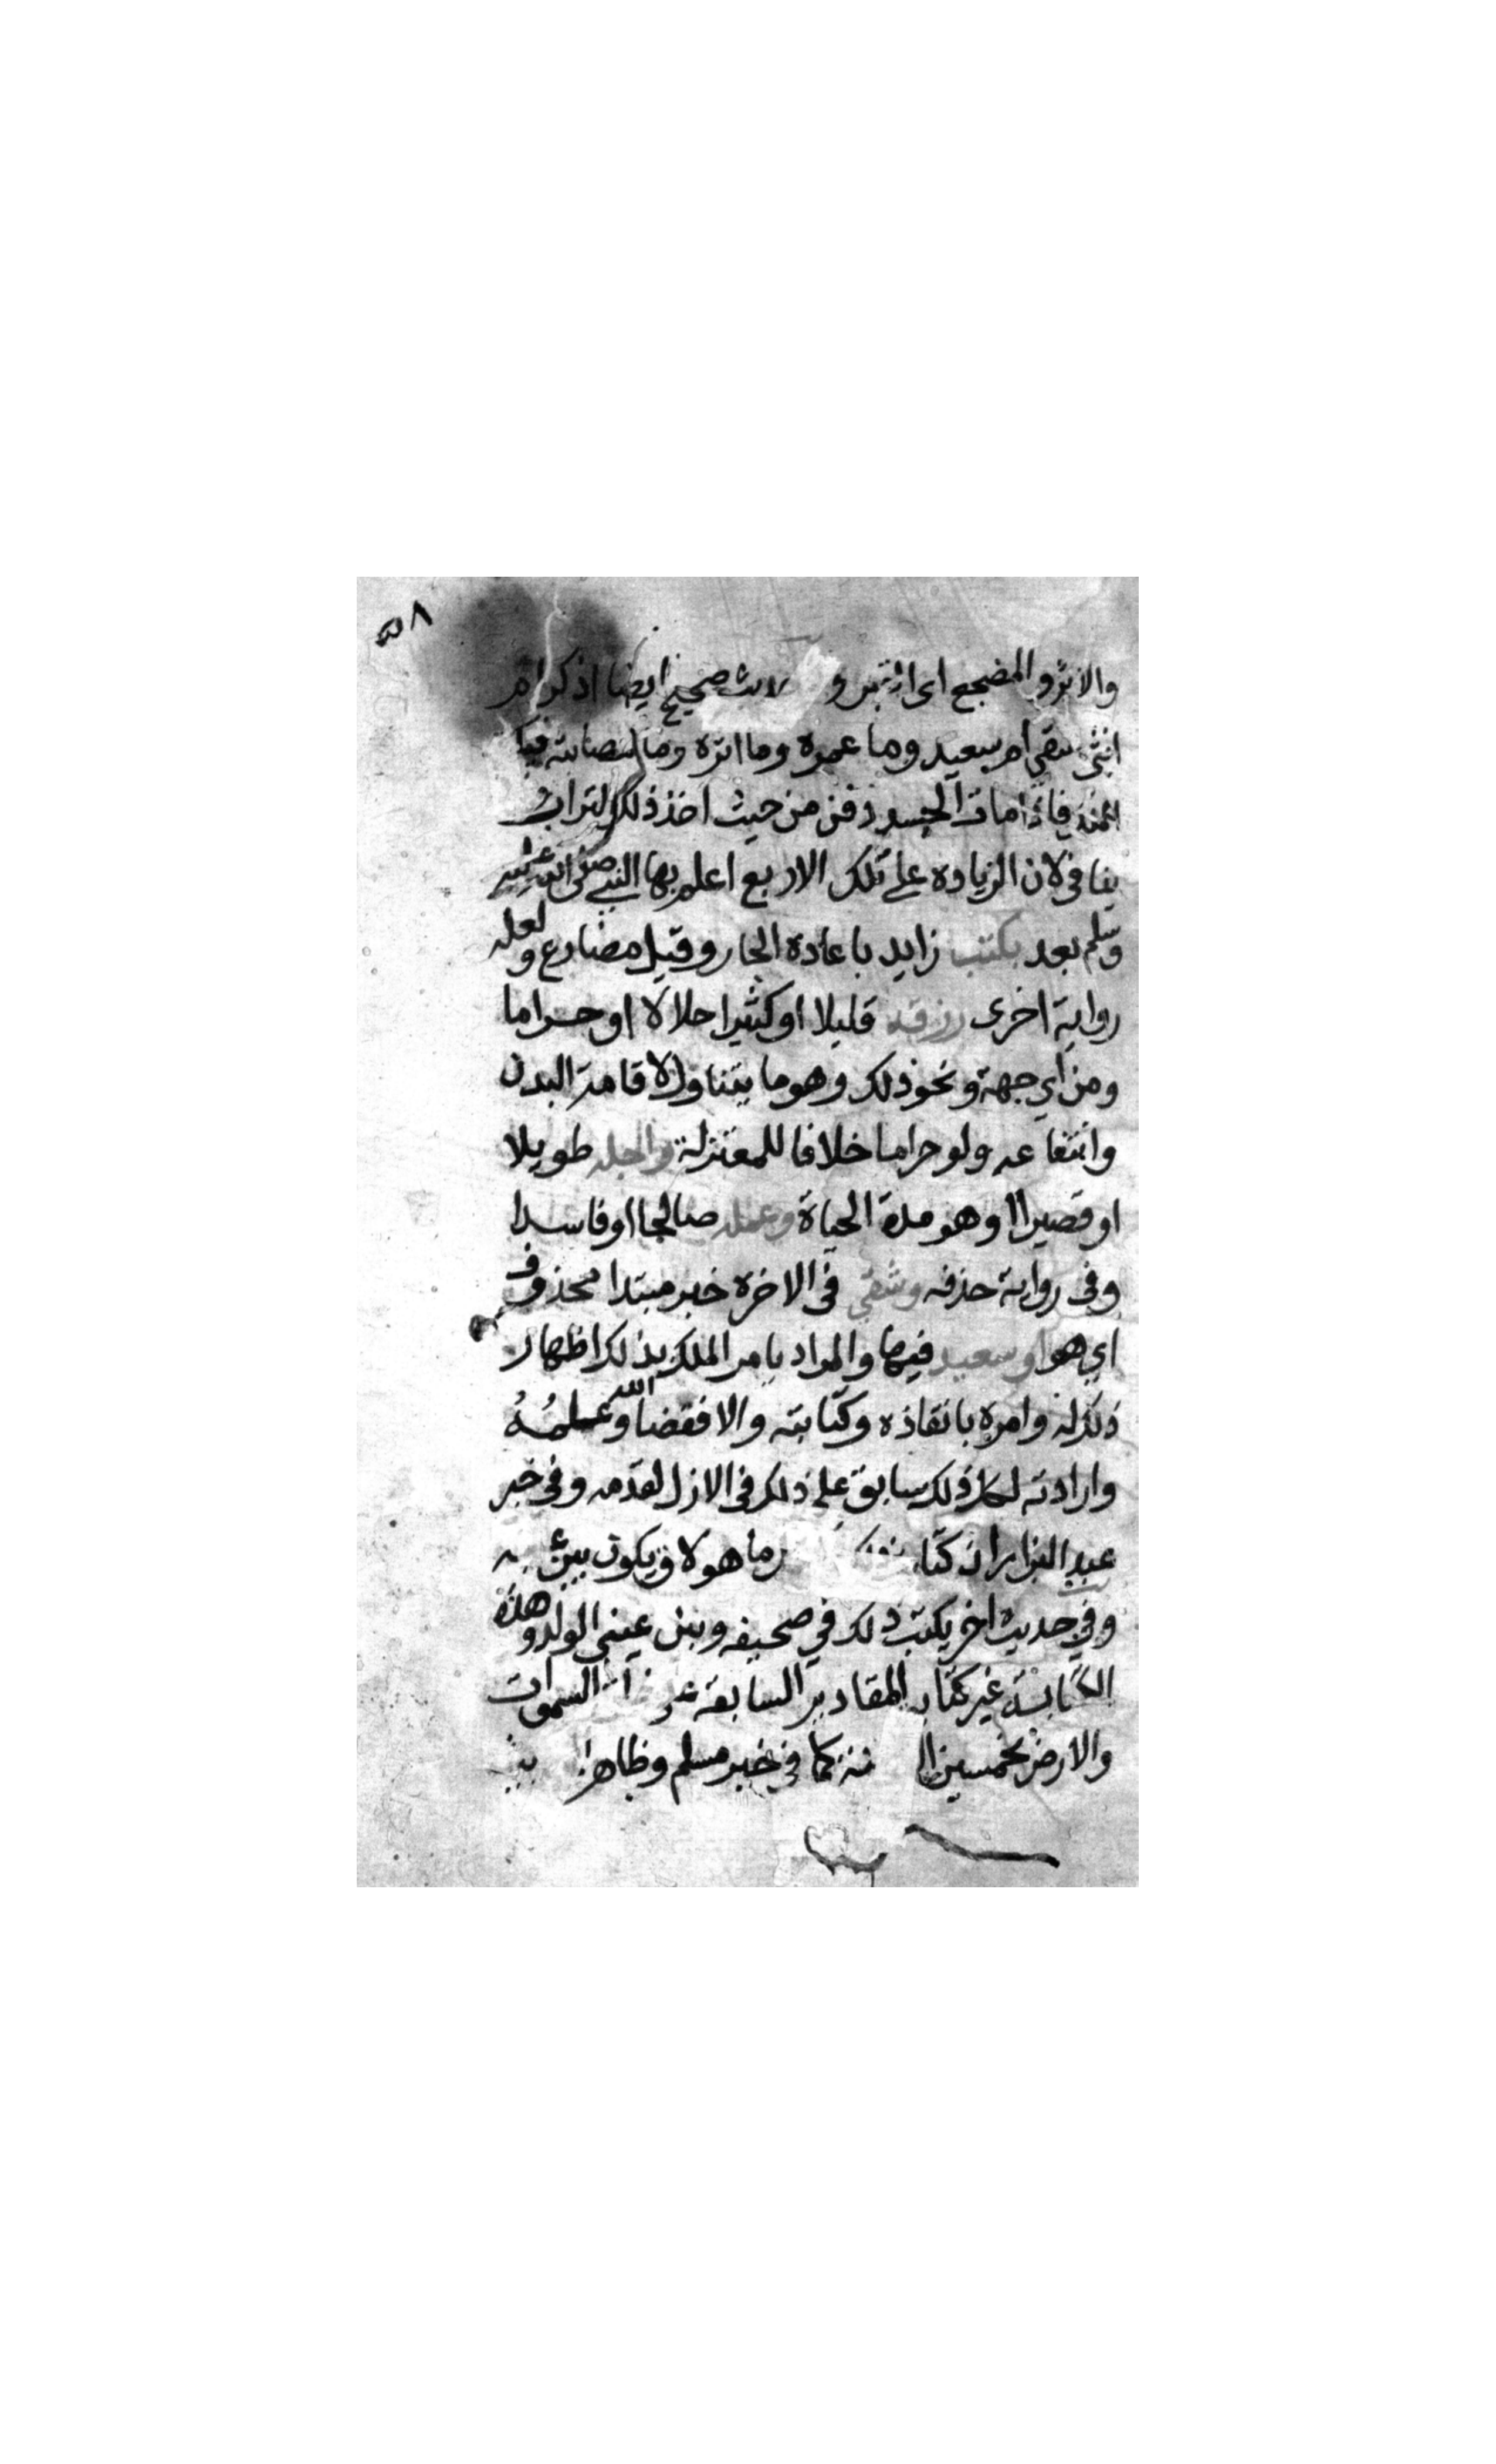 ٥٨
والاثر والمضجع اى ان تقبر و صحيح ايضا اذكر ام
انثى شقى ام سعيد وما عمره وما اثره وما فيها
فاذا مات الجسد دفن من حيث اخذ ذلك التراب
ينافى لان الزيادة على تلك الاربع اعلم بها النبي صلى الله عليه
وسلم بعد بكتب زايد باعادة الجار وقيل مضارع ولعله
رواية اخرى رزقه قليلا او كثيرا حلالا او حراما
ومن اي جهة ونحو ذلك وهو ما يتناول لاقامة البدن
وانتفاعه ولو حراما خلافا للمعتزلة واجله طويلا
او قصيرا وهو مدة الحياة وعمله صالحا او فاسدا
وفى رواية حذفه وشقي فى الاخرة خبر مبتدا محذوف
اي هو او سعيد فيها والمراد بامر الملك بذلك اظهار
ذلك له وامره بانفاذه وكتابته والا فقضا الله وعلمه
وارادته لكل ذلك سابق على ذلك فى الازل لقدمه وفى خبر
عبد البزار ان ما هو لاق يكون بين
وفي حديث اخر يكتب ذلك في صحيفه وبين عينى الولد وهذه
الكتابة غير كتابة المقادير السابقة السموات
والارض بخمسين كما في خبر مسلم وظاهر